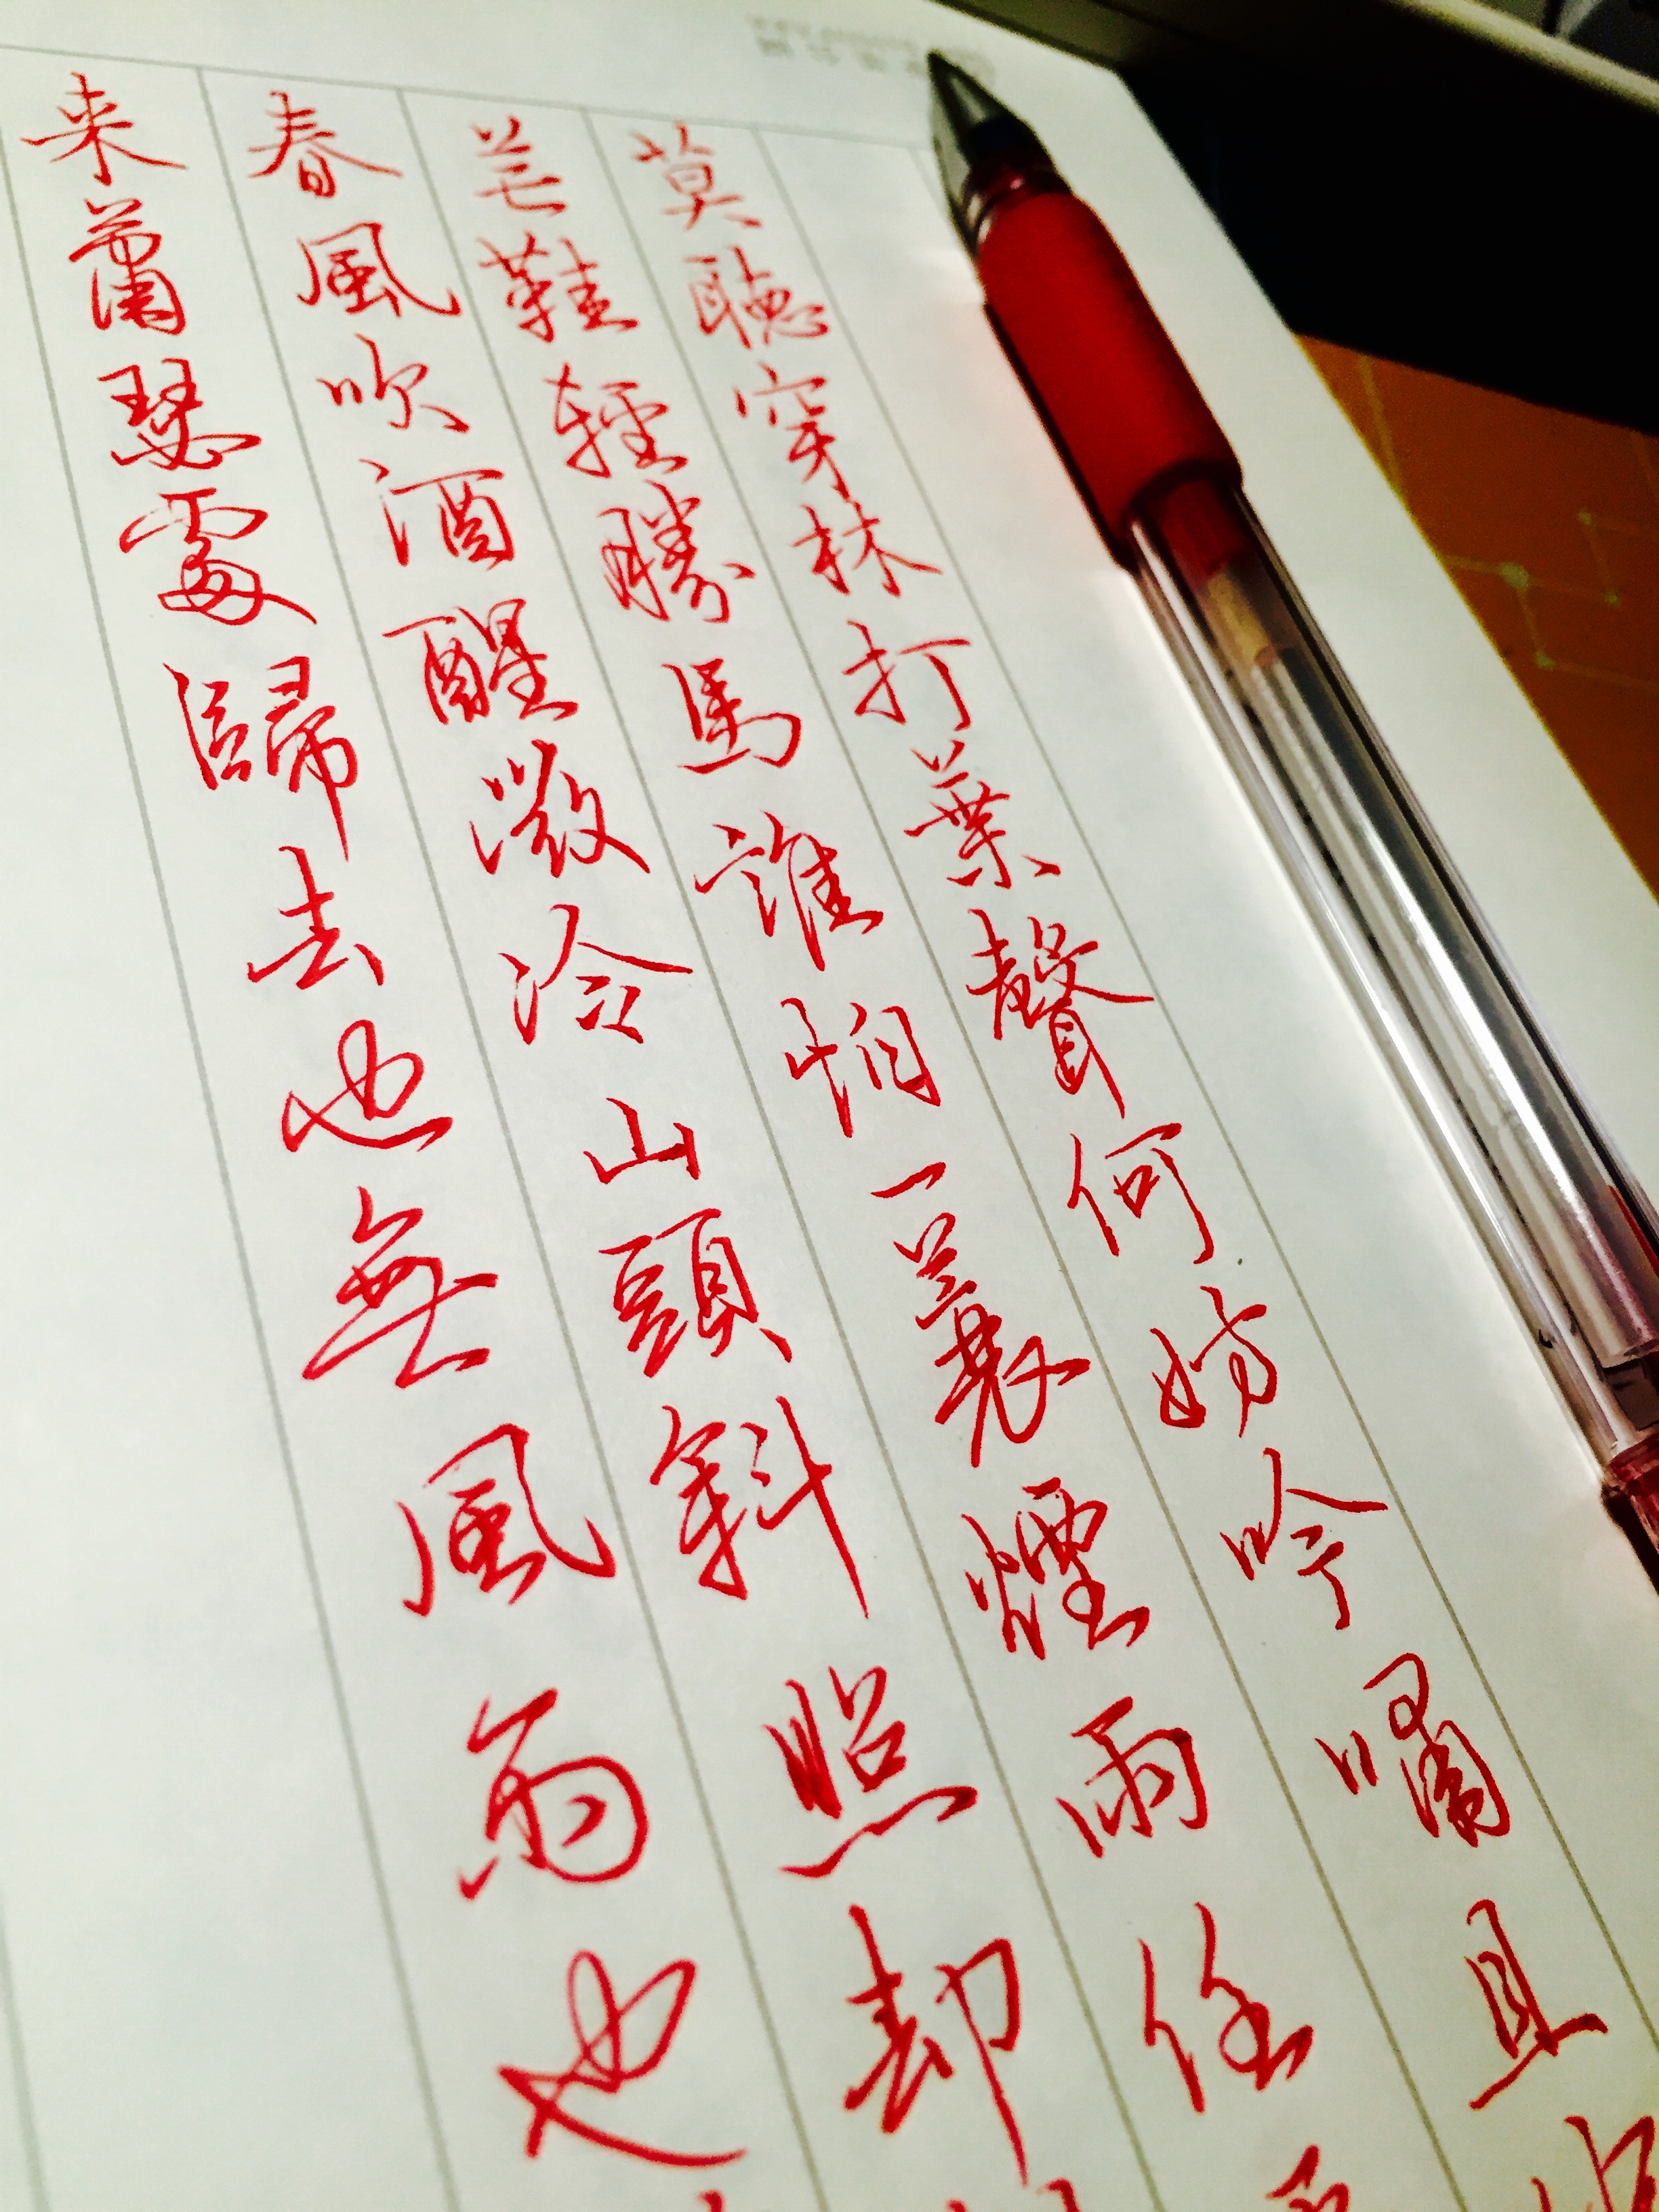 莫聽穿林打葉聲何妨吟嘯且
芒鞋輕勝馬誰怕一蓑煙雨任
春風吹酒醒微冷山頭斜照却
来蕭瑟處歸去也無風雨也